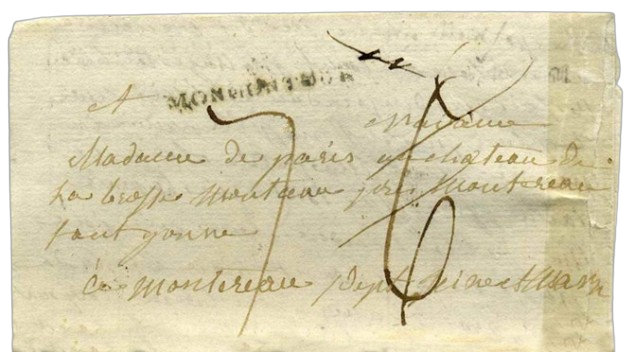 A
Madame
Madame de paris au chateau de
La brosse Montceau près Montereau
faut yonne
à Montereau Dept Seine et Marne
7
6